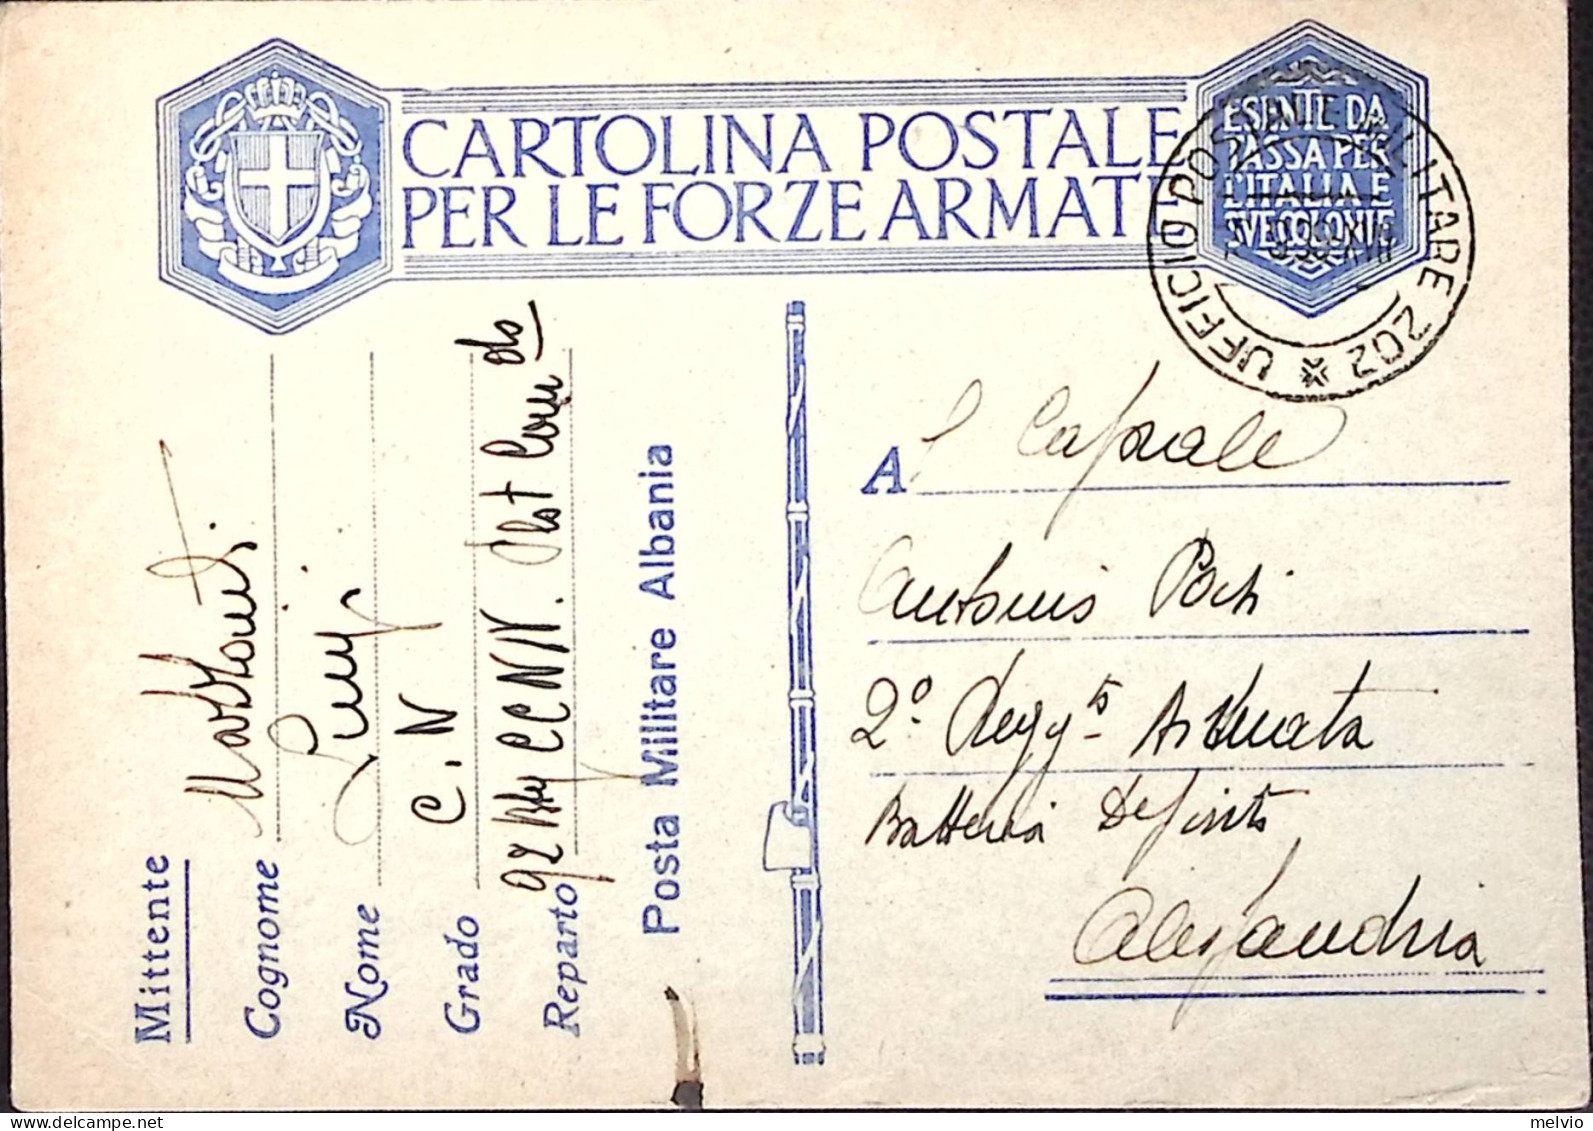 CARTOLINA POSTALE
PER LE FORZE ARMATE
ESENTE DA
TASSA PER
L'ITALIA E
SVE COLONIE
UFFICIO POSTALE MILITARE 202
Mittente
Cognome
Nome Luigi
Grado C.N
Reparto 92 Btg CCNN. Plot Com do
Posta Militare Albania
A l Caporale
Antonio
2º Regg to Art
Batteria Deposito
Alessandria
melvio